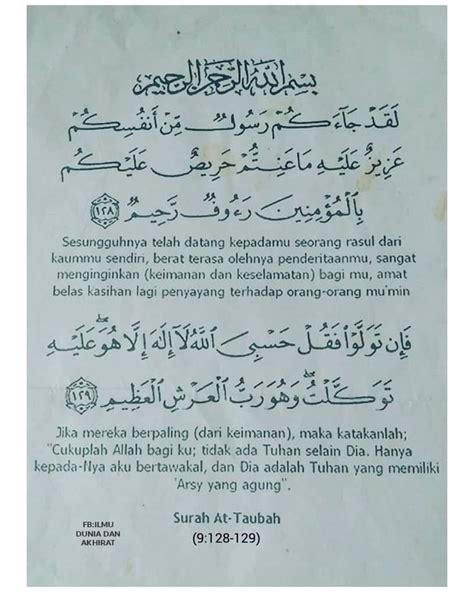 بِسْمِ اللَّهِ الرَّحْمَٰنِ الرَّحِيمِ
لَقَدْ جَاءَكُمْ رَسُولٌ مِّنْ أَنفُسِكُمْ
عَزِيزٌ عَلَيْهِ مَا عَنِتُّمْ حَرِيصٌ عَلَيْكُم
بِالْمُؤْمِنِينَ رَءُوفٌ رَّحِيمٌ ١٢٨
Sesungguhnya telah datang kepadamu seorang rasul dari
kaummu sendiri, berat terasa olehnya penderitaanmu, sangat
menginginkan (keimanan dan keselamatan) bagi mu, amat
belas kasihan lagi penyayang terhadap orang-orang mu'min
فَإِن تَوَلَّوْا فَقُلْ حَسْبِيَ اللَّهُ لَا إِلَٰهَ إِلَّا هُوَ ۖ عَلَيْهِ
تَوَكَّلْتُ ۖ وَهُوَ رَبُّ الْعَرْشِ الْعَظِيمِ ١٢٩
Jika mereka berpaling (dari keimanan), maka katakanlah;
"Cukuplah Allah bagi ku; tidak ada Tuhan selain Dia. Hanya
kepada-Nya aku bertawakal, dan Dia adalah Tuhan yang memiliki
'Arsy yang agung".
Surah At-Taubah
(9:128-129)
FB:ILMU
DUNIA DAN
AKHIRAT